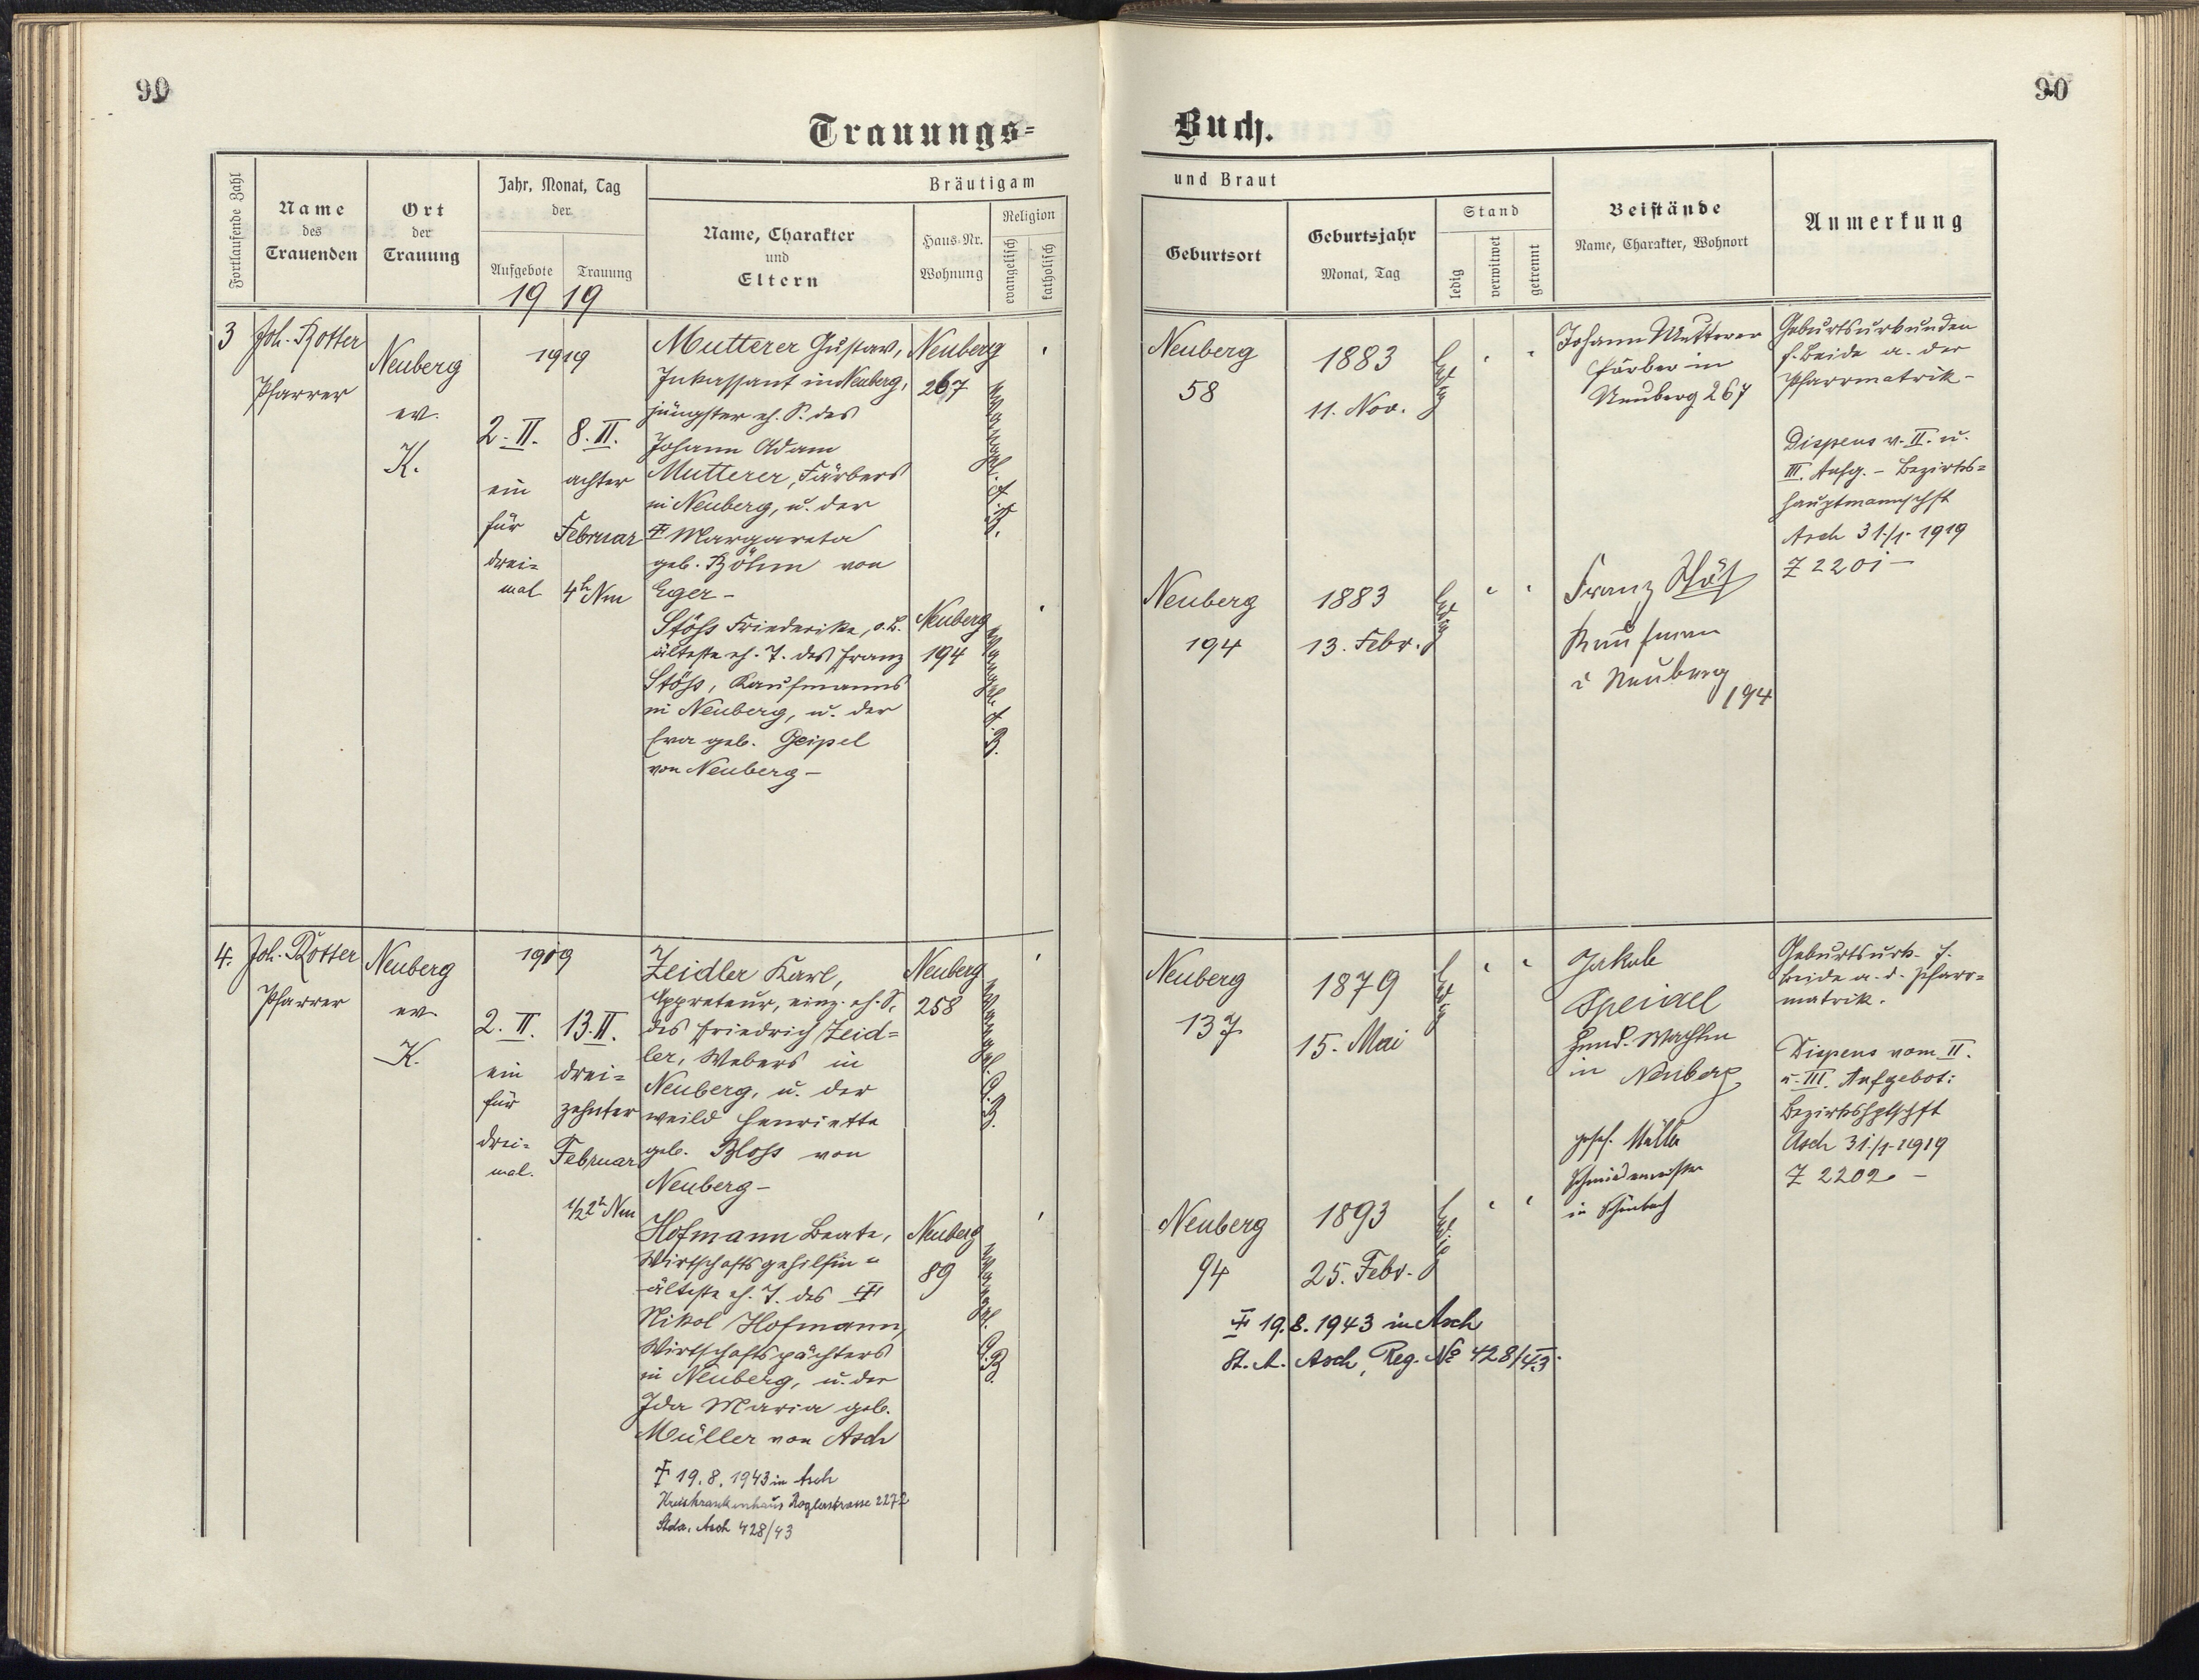 90
90
Trauungs=
Buch.
Fortlaufende Zahl
Name
des
Trauenden
Ort
der
Trauung
Jahr, Monat, Tag
der
Aufgebote
Trauung
19 19
Bräutigam
Name, Charakter
und
Eltern
Haus-Nr.
Wohnung
Religion
evangelisch
katholisch
und Braut
Geburtsort
Geburtsjahr
Monat, Tag
Stand
ledig
verwitwet
getrennt
Beistände
Name, Charakter, Wohnort
Anmerkung
3
Joh. Rotter
Pfarrer
Neuberg
ev.
K.
1919
2. II.
ein
für
drei=
mal
8. II.
achter
Februar
4h Nm
Mutterer Gustav,
Inkassant in Neuberg,
jüngster eh. S. des
Johann Adam
Mutterer, Färbers
in Neuberg, u. der
Margareta
geb. Böhm von
Eger –
Neuberg
267
evangel. A. B.
Stöss Friederike, o. B.
älteste eh. T. des Franz
Stöss, Kaufmanns
in Neuberg, u. der
Eva geb. Geipel
von Neuberg –
Neuberg
194
evangel. A. B.
Neuberg
58
1883
11. Nov.
ledig
Neuberg
194
1883
13. Febr.
ledig
Johann Mutterer
Färber in
Neuberg 267
Franz Stöß
Kaufmann
i Neuberg
194
Geburtsurkunden
f. Beide a. der
Pfarrmatrik –
Dispens v. II. u.
III. Aufg. – Bezirks=
hauptmannschft
Asch 31./1. 1919
Z 2201 –
4.
Joh. Rotter
Pfarrer
Neuberg
ev.
K.
1919
2. II.
ein
für
drei=
mal.
13. II.
drei=
zehnter
Februar
1/2 2h Nm
Zeidler Karl,
Appreteur, einz. eh. S.
des Friedrich Zeid=
ler, Webers in
Neuberg, u. der
weild Henriette
geb. Bloss von
Neuberg –
Neuberg
258
evangel. A. B.
Hofmann Beate,
Wirtschaftsgehilfin
älteste eh. T. des
Nikol Hofmann,
Wirtschaftspächters
in Neuberg, u. der
Ida Maria geb.
Müller von Asch
Neuberg
89
evangel. A. B.
† 19.8.1943 in Asch
Kreiskrankenhaus 2272
Stda. Asch 428/43
Neuberg
137
1879
15. Mai
ledig
Neuberg
94
1893
25. Febr.
ledig
† 19.8.1943 in Asch
St. A. Asch, Reg. No 428/43.
Jakob
in Neuberg
Müller
Schmiedemeister
in Schönbach
Geburtsurk. f.
beide a. d. Pfarr=
matrik.
Dispens vom II.
u. III. Aufgebot:
Bezirkshptschft
Asch 31./1. 1919
Z 2202 –